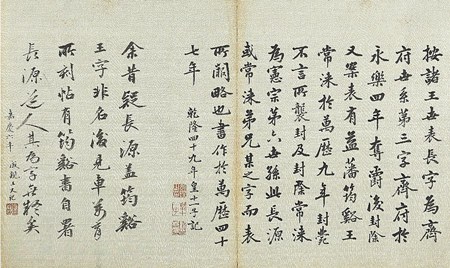 按諸王世表長字為齊
府世系第三字齊府於
永樂四年奪爵後封除
又案表有益藩筠谿王
常涞於萬曆九年封薨
不言所襲封及封除常涞
為憲宗第六世孫此長源
或常涞弟兄某之字而表
所闕略也書作於萬曆四十
七年 乾隆四十九年皇十一子記
余昔疑長源益筠谿
王字非名後見車萬育
所刻帖有筠谿書自署
長源道人其為字無疑矣
嘉慶六年 成親王又記